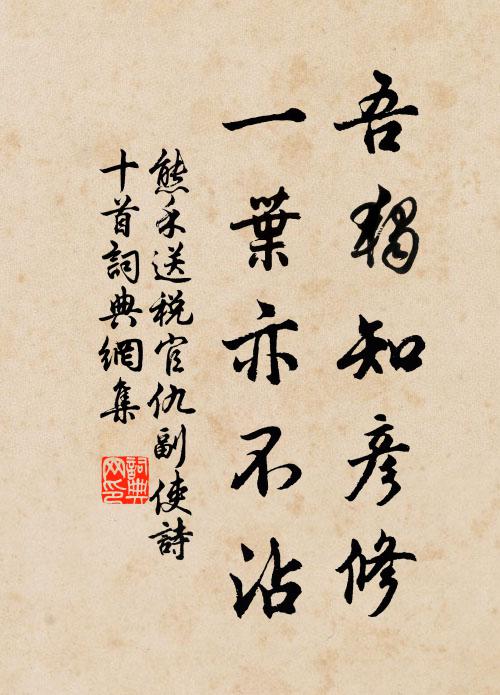 吾獨知彦修
一葉亦不沾
熊禾送税官仇副使詩
十首詞典網集
詞典網印